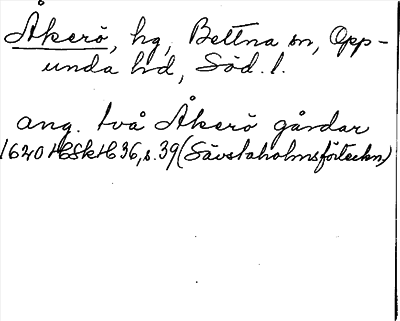 Åkerö, hg, Bettna sn, Opp-
unda hd, Söd. l.
ang. två Åkerö gårdar
1640 HSkH 36, s. 39 (Sävstaholmsförteckn)